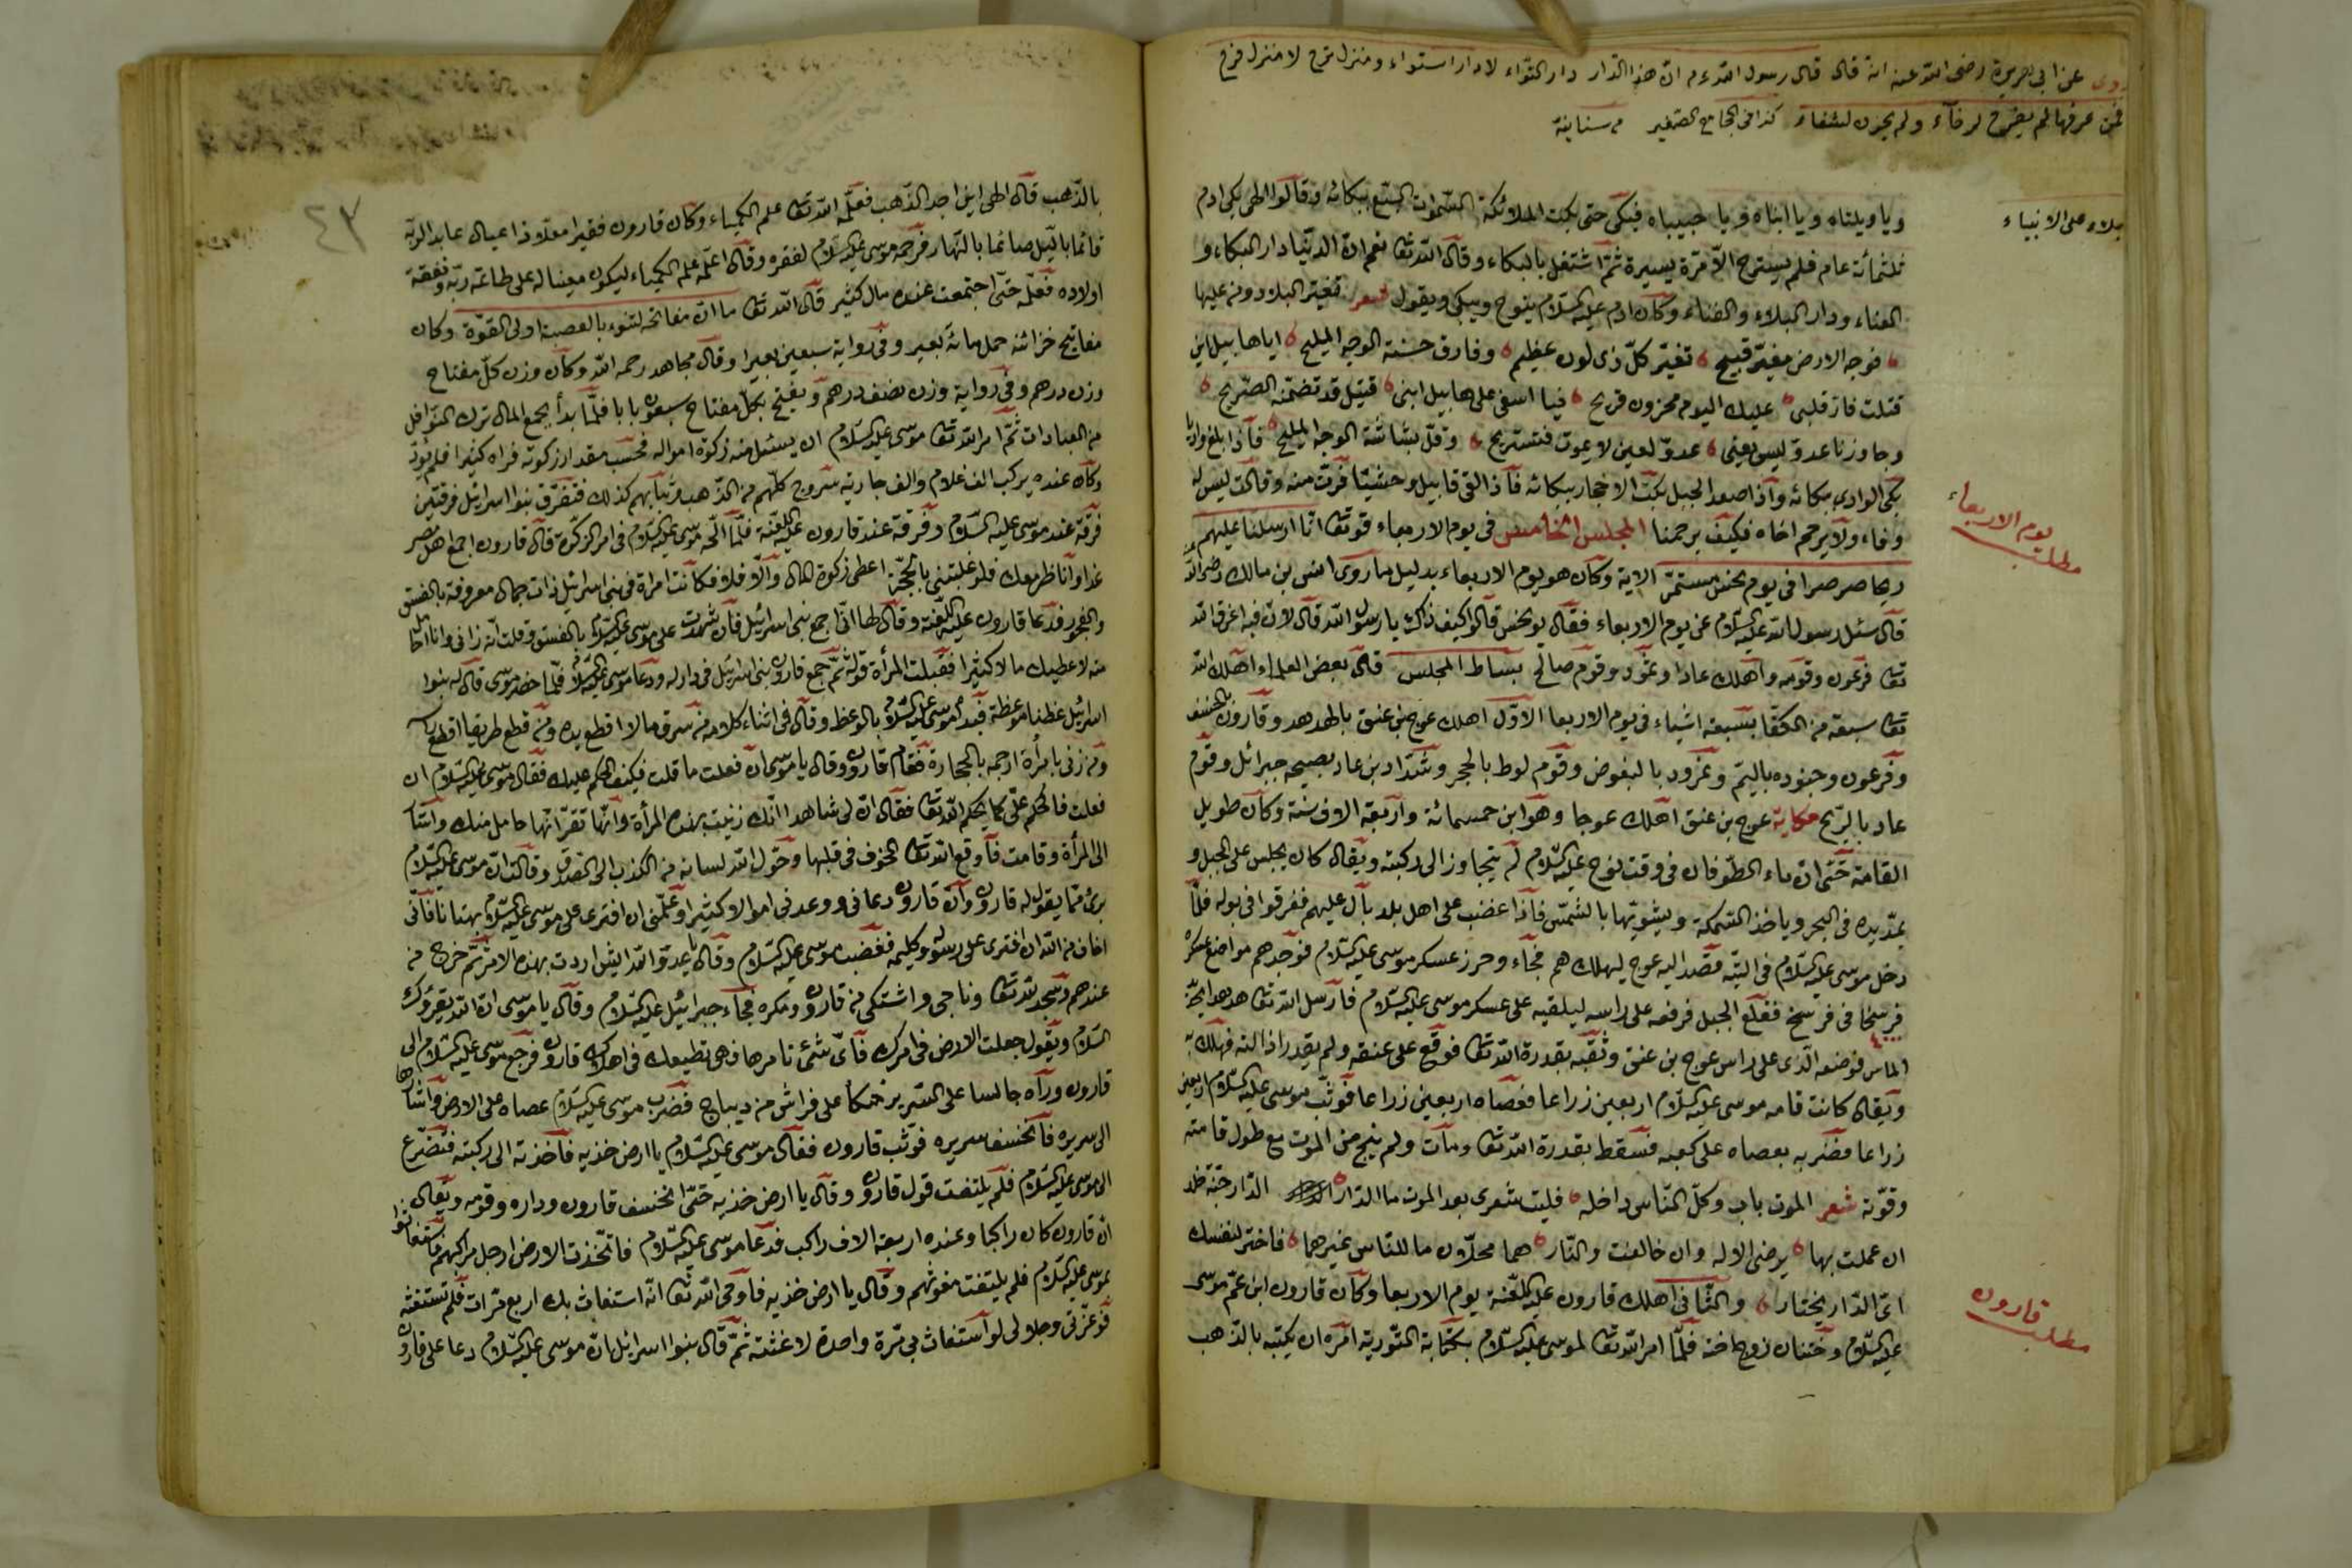 روى عن ابى هريرة رضى الله عنه انه قال قال رسول الله عم ان هذا الدار دار التواء لا دار استواء ومنزل ترح لا منزل فرح
فمن عرفها لم يفرح لرخآء ولم يحزن لشقاء كذا فى الجامع الصغير
على الانبياء
ويا ويلتاه ويا ابتاه ويا حبيباه فبكى حتى بكت الملائكة السموات السبع ببكائه وقالوا الهى بكى ادم
ثلثمائة عام فلم يسترح الا مرة يسيرة ثم اشتغل بالبكاء وقال الله تعا نعم ان الدنيا دار البكاء و
العناء ودار البلاء والفناء وكان ادم عليه السلام ينوح ويبكى ويقول شعر تغيّر البلاد ومن عليها
فوجه الارض مغبرّ قبيح تغيّر كلّ ذى لون عظيم وفارق حسنة الوجه المليح ايا هابيل ابن
قتلت فان قلبى عليك اليوم محزون قريح فيا اسفى على هابيل ابنى قتيل قد تضمّنه الضريح
وجاوزنا عدوّ ليس يعنى عدوّ لعين لا يموت فنستريح وقلّ بشاشة الوجه المليح فاذا بلغ واديا
بكى الوادى ببكائه واذا صعد الجبل بكت الاحجار ببكائه فاذا القى قابيل وحشيتا فرّت منه وقالت ليس له
وفاء ولا يرحم اخاه فكيف يرحمنا المجلس الخامس فى يوم الاربعاء قوتعا انا ارسلنا عليهم
يوم الاربعاء
مطلب
ريحا صرصرا فى يوم نحس مستمرّ الاية وكان هو يوم الاربعاء بدليل ما روى انس بن مالك رضى الله
قال سئل رسول الله عليه السلام عن يوم الاربعاء فقال يوم نحس قالوا كيف ذاك يا رسول الله قال لان فيه اغرق الله
تعا فرعون وقومه واهلك عادا وثمود وقوم صالح بساط المجلس قال بعض العلماء اهلك الله
تعا سبعة من الكفّا بسبعة اشياء فى يوم الاربعا الاوّل اهلك عوج بن عنق بالهدهد وقارون بالخسف
وفرعون وجنوده باليمّ ونمرود بالبعوض وقوم لوط بالحجر وشدّاد بن عاد بصيحه جبرائل وقوم
عاد بالريح حكاية عوج بن عنق اهلك عوجا وهو ابن خمسمائة واربعة الاف سنة وكان طويل
القامة حتى ان ماء الطوفان فى وقت نوح عليه السلام لم يتجاوز الى ركبته ويقال كان يجلس على الجبل و
يمدّ يده فى البحر وياخذ السمكة ويشويها بالشمس فاذا غضب على اهل بلد بال عليهم فغرقوا فى بوله فلما
دخل موسى عليه السلام فى التيه قصد اليه عوج ليهلك هم فجاء وحرز عسكر موسى عليه السلام فوجدهم مواضع عسكره
فرسخا فى فرسخ فقلع الجبل فرفعه على راسه ليلقيه على عسكر موسى عليه السلام فارسل الله تعا هدهدا
الماس فوضعه الذى على راس عوج بن عنق وثقّبه بقدرة الله تعا فوقع على عنقه ولم يقدر اذالته فهلك به
ويقال كانت قامه موسى عليه السلام اربعين زراعا فعصاه اربعين زراعا فوثب موسى عليه السلام اربعين
زراعا فضربه بعصاه على كعبه فسقط بقدرة الله تعا ومات ولم ينج من الموت مع طول قامته
وقوّته شعر الموت باب وكلّ النّاس داخله فليت شعرى بعد الموت ما الدّار الدّار جنّة خلد
ان عملت بها يرضى الاله وان خالفت والنّار هما محلّان ما للنّاس غيرهما فاختر لنفسك
اىّ الدّار يختار والثّانى اهلك قارون عليه اللعنة يوم الاربعا وكان قارون ابن عمّ موسى
قارون
مطلب
عليه السلام وختنان زوج اخته فلمّا امر الله تعا لموسى عليه السلام بكتابة التورية امره ان يكتبه بالذهب
٤٣
بالذّهب قال الهى اين اجد الذّهب فعلّمه الله تعا علم الكيمياء وكان قارون فقيرا مقلا ذا عيال عابد الربّه
قائما بالّيل صائما بالنّهار فرحمه موسى عليه السلام لفقره وقال اعلّمه علم الكيمياء ليكون معينا له على طاعة ربّه ونفقة
اولاده فعلّمه حتّى اجتمعت عنده مال كثير قال الله تعا ما انّ مفاتحه لتنوء بالعصبة اولى القوّة وكان
مفاتيح خزائنه حمل مائة بعير وفى رواية سبعين بعيرا وقال مجاهد رحمه الله وكان وزن كلّ مفتاح
وزن درهم وفى رواية وزن نصف درهم ويفتح بكلّ مفتاح سبعون بابا فلمّا بدأ يجمع المال ترك النوافل
من العبادات ثمّ امر الله تعا موسى عليه السلام ان يسئل منه زكوة امواله فحسب مقدار زكوته فراه كثيرا فلم يؤد
وكان عنده يركب الف غلام والف جارية سروج كلّهم من الذّهب وثيابهم كذلك فتفرّق بنوا اسرائل فرقتين
فرقة عند موسى عليه السلام وفرقة عند قارون عليه اللعنة فلمّا الحّه موسى عليه السلام فى امر الزكوة قال قارون اجمع اهل مصر
غدا وانا ظر معك فلو غلبتنى بالحجّة اعطى زكوة المال والّا فلا فكانت امراة فى بنى اسرائل ذات جمال معروفة بالفسق
والفجور فدعا قارون عليه اللعنة وقال لها انّى اجمع بنى اسرائل فان شهدت على موسى عليه السلام بالفسق وقلت انّه زانى وانا حامل
منه لاعطيك مالا كثيرا فقبلت المرأة قوله ثمّ جمع قارون بنى اسرائل فى داره ودعا موسى عليه السلام فلمّا حضر موسى قال له بنوا
اسرائل عظنا موعظة فبدأ موسى عليه السلام بالوعظ وقال فى اثناء كلامه من سرق مالا اقطع يده ومن قطع طريقا اقطع رأسه
ومن زنى بامرأة ارجمه بالحجارة فقام قارون وقال يا موسى ان فعلت ما قلت فكيف الحكم عليك فقال موسى عليه السلام ان
فعلت فالحكم علىّ كما يحكم الله تعا فقال انّ لى شاهدا انّك زنيت بهذه المرأة وانّها تقرّ انّها حامل منك واشا
الى المرأة وقامت فاوقع الله تعا الخوف فى قلبها وحوّل الله لسانه من الكذب الى الصّدق وقالت انّ موسى عليه السلام
برئ ممّا يقول له قارون وانّ قارون دعانى ووعدنى اموالا كثيرا وعلّمنى ان افترى على موسى عليه السلام بهتانا فانّى
اخاف من الله ان افترى على رسوله وكليمه فغضب موسى عليه السلام وقال يا عدوّ الله ايش اردت بهذه الامر ثمّ خرج من
عندهم وسجد لله تعا وناجى واشتكى من قارون ومكره فجاء جبرائيل عليه السلام وقال يا موسى انّ الله يقرؤك
السلام ويقول جعلت الارض فى امرك فاىّ شئ تامرها فهى تطيعك فى اهلاك قارون فرجع موسى عليه السلام الى
قارون ورآه جالسا على السّرير متكأ على فراش من ديباج فضرب موسى عليه السلام عصاه على الارض واشا
الى سريره فانخسف سريره فوثب قارون فقال موسى عليه السلام يا ارض خذيه فاخذته الى ركبته فتضرّع
الى موسى عليه السلام فلم يلتفت قول قارون وقال يا ارض خذيه حتّى انخسف قارون وداره وقومه ويقال
انّ قارون كان راكبا وعنده اربعة الاف راكب فدعا موسى عليه السلام فاتّخذت الارض ارجل مراكبهم فاستغاثوا
بموسى عليه السلام فلم يلتفت مغوثهم وقال يا ارض خذيه فاوحى الله تعا انّه استغاث بك اربع مرّات فلم تستغثه
فوعزّتى وجلالى لو استغاث بى مرّة واحدة لاغثته ثمّ قال بنوا اسرائل انّ موسى عليه السلام دعا على قارون